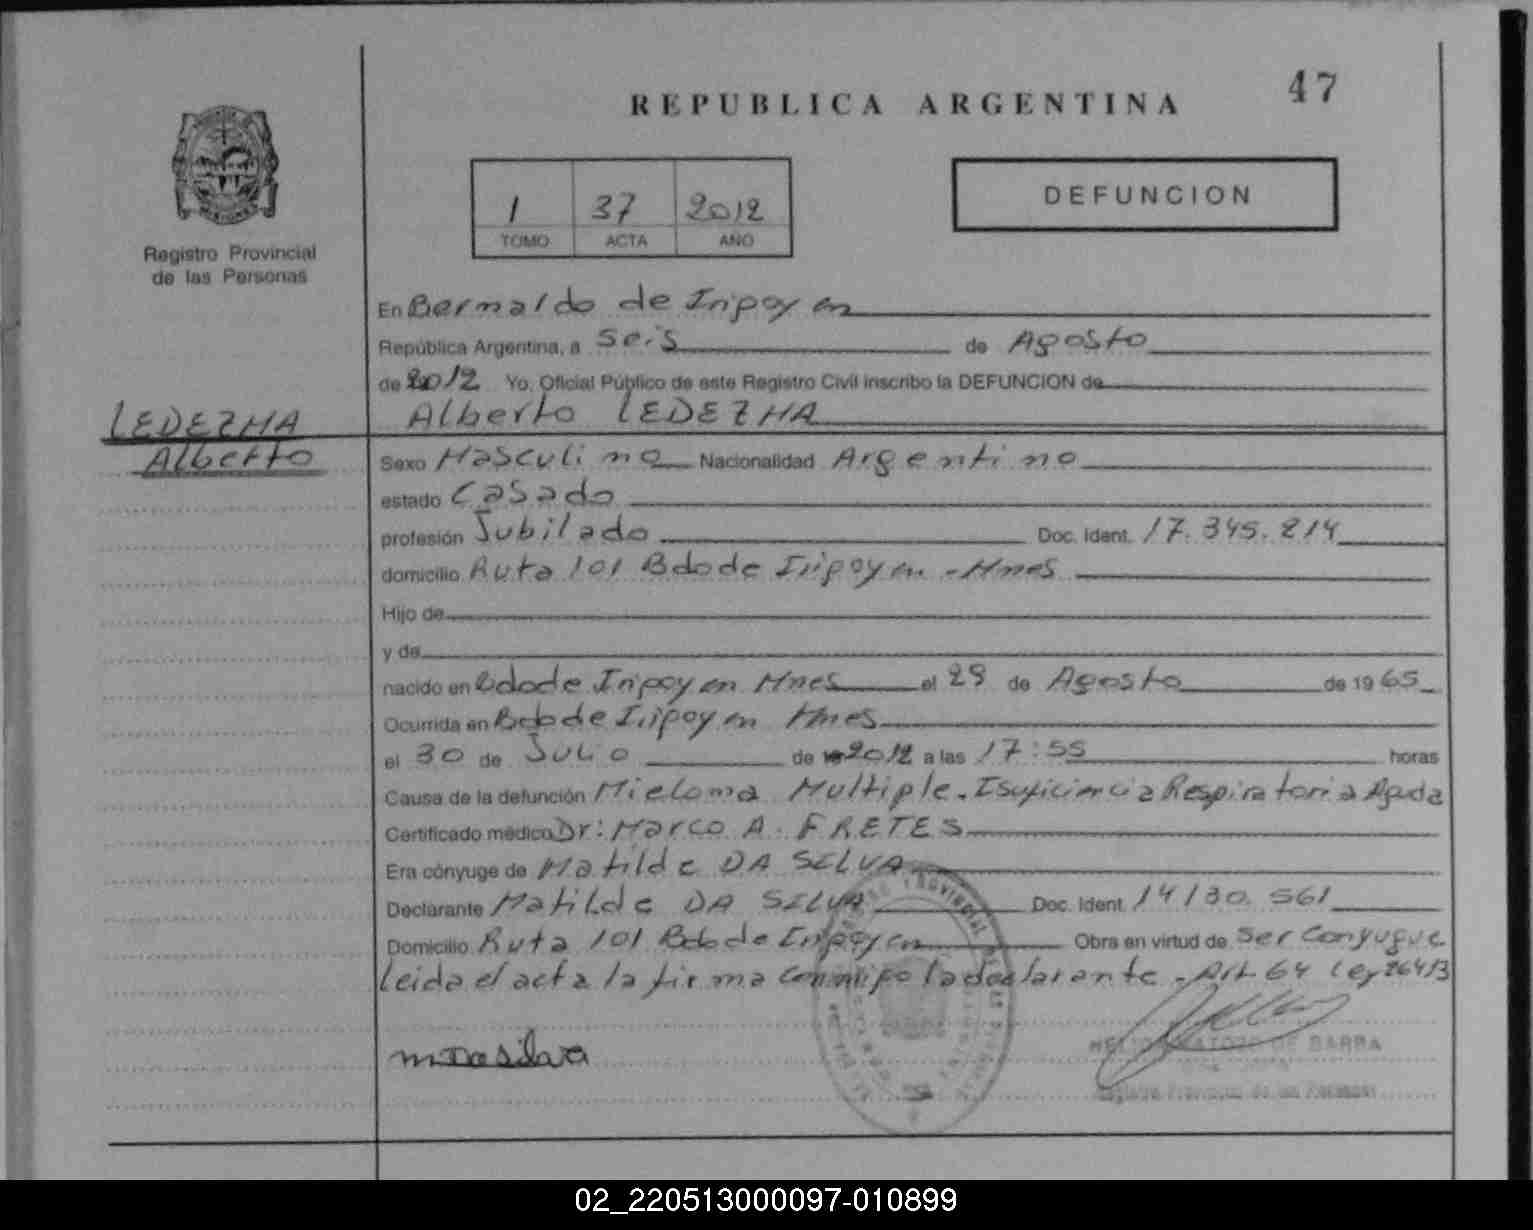 47
REPUBLICA ARGENTINA
1 37 2012
TOMO ACTA AÑO
DEFUNCION
Registro Provincial
de las Personas
En Bernaldo de Iripoyen
República Argentina, a Seis de Agosto
de 2012 Yo, Oficial Público de este Registro Civil inscribo la DEFUNCION de
Alberto LEDEZMA
LEDEZMA
Alberto
Sexo Masculino Nacionalidad Argentino
estado Casado
profesión Jubilado Doc. Ident. 17.345.214
domicilio Ruta 101 Bdo de Iripoyen - Mnes
Hijo de
y de
nacido en Bdo de Iripoyen Mnes el 29 de Agosto de 1965
Ocurrida en Bdo de Iripoyen Mnes
el 30 de Julio de 2012 a las 17:55 horas
Causa de la defunción Mieloma Multiple. Isuficiencia Respiratoria Aguda
Certificado médico Dr: Marco A. FRETES
Era cónyuge de Matilde DA SILVA
Declarante Matilde DA SILVA Doc. Ident. 14130.561
Domicilio Ruta 101 Bdo de Iripoyen Obra en virtud de Ser Conyugue
Leida el acta la firma conmigo la declarante - Art. 64 Ley 26413
DE BARRA
Registro Provincial de las Personas
02_220513000097-010899